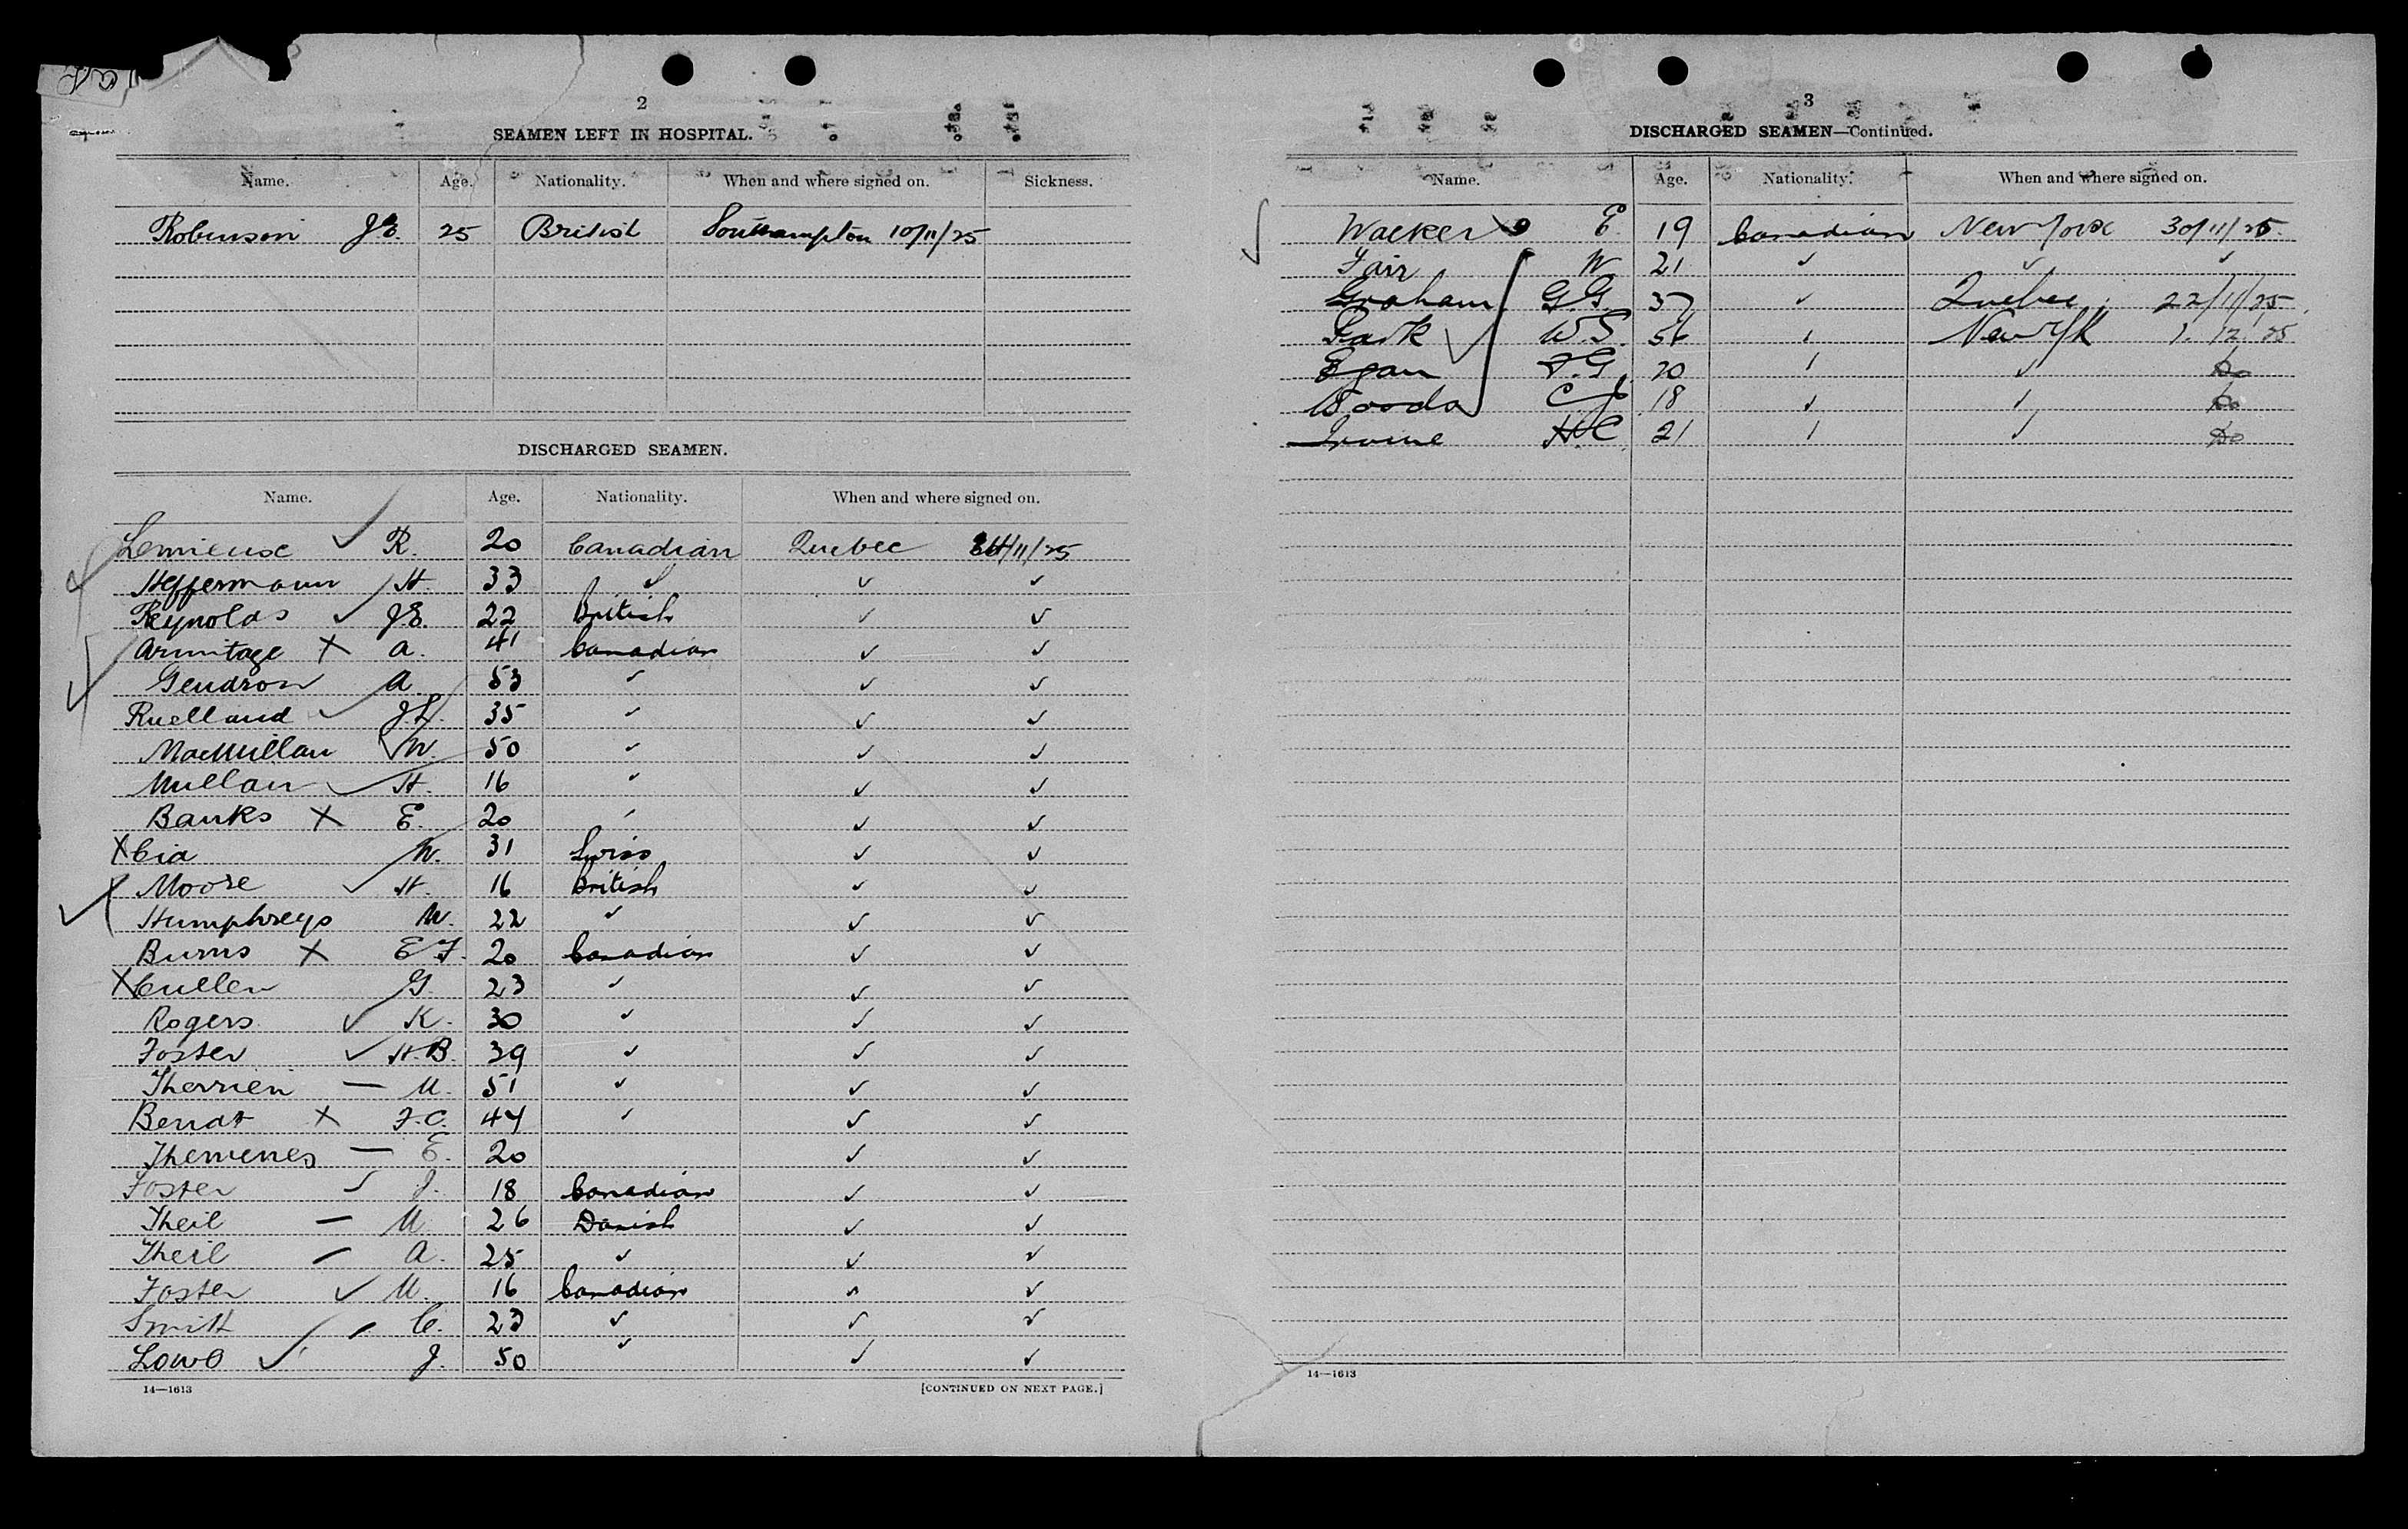 2
SEAMEN LEFT IN HOSPITAL.
Name. Age. Nationality. When and where signed on. Sickness.
Robinson J.E. 25 British Southampton 10/11/25
DISCHARGED SEAMEN.
Name. Age. Nationality. When and where signed on.
Lemieux ✓ R. 20 Canadian Quebec /11/25
Heffermann ✓ H. 33 ✓ ✓ ✓
Reynolds ✓ J.E. 22 British ✓ ✓
Armitage X A. 41 Canadian ✓ ✓
Gendron A 53 ✓ ✓ ✓
Ruelland ✓ J.L. 35 ✓ ✓ ✓
MacMillan ✓ W 50 ✓ ✓ ✓
Mullan ✓ H. 16 ✓ ✓ ✓
Banks X E. 20 ✓ ✓ ✓
X Cia W. 31 Swiss ✓ ✓
Moore ✓ H. 16 British ✓ ✓
Humphreys W. 22 ✓ ✓ ✓
Burns X E F. 20 Canadian ✓ ✓
X Cullen G. 23 ✓ ✓ ✓
Rogers ✓ K. 30 ✓ ✓ ✓
Foster ✓ H.B. 39 ✓ ✓ ✓
Therrien — M. 51 ✓ ✓ ✓
Berndt X F.C. 44 ✓ ✓ ✓
Themenes — E. 20 ✓ ✓
Foster ✓ J. 18 Canadian ✓ ✓
Theil — M. 26 Danish ✓ ✓
Theil — A. 25 ✓ ✓ ✓
Foster ✓ M. 16 Canadian ✓ ✓
Smith C. 23 ✓ ✓ ✓
Lowe ✓ J. 50 ✓ ✓ ✓
14—1613 [CONTINUED ON NEXT PAGE.]
3
DISCHARGED SEAMEN—Continued.
Name. Age. Nationality. When and where signed on.
Walker E. 19 Canadian New York 30/11/25.
Fair W 21 ✓ ✓ ✓
Graham G.G. 37 ✓ Quebec 22/11/25
W.S. 56 New Yk 1.12.25
Egan F.G. 20 ✓ Do
Woods C J 18 ✓ Do
Irvine H.C. 21 ✓ Do
14—1613